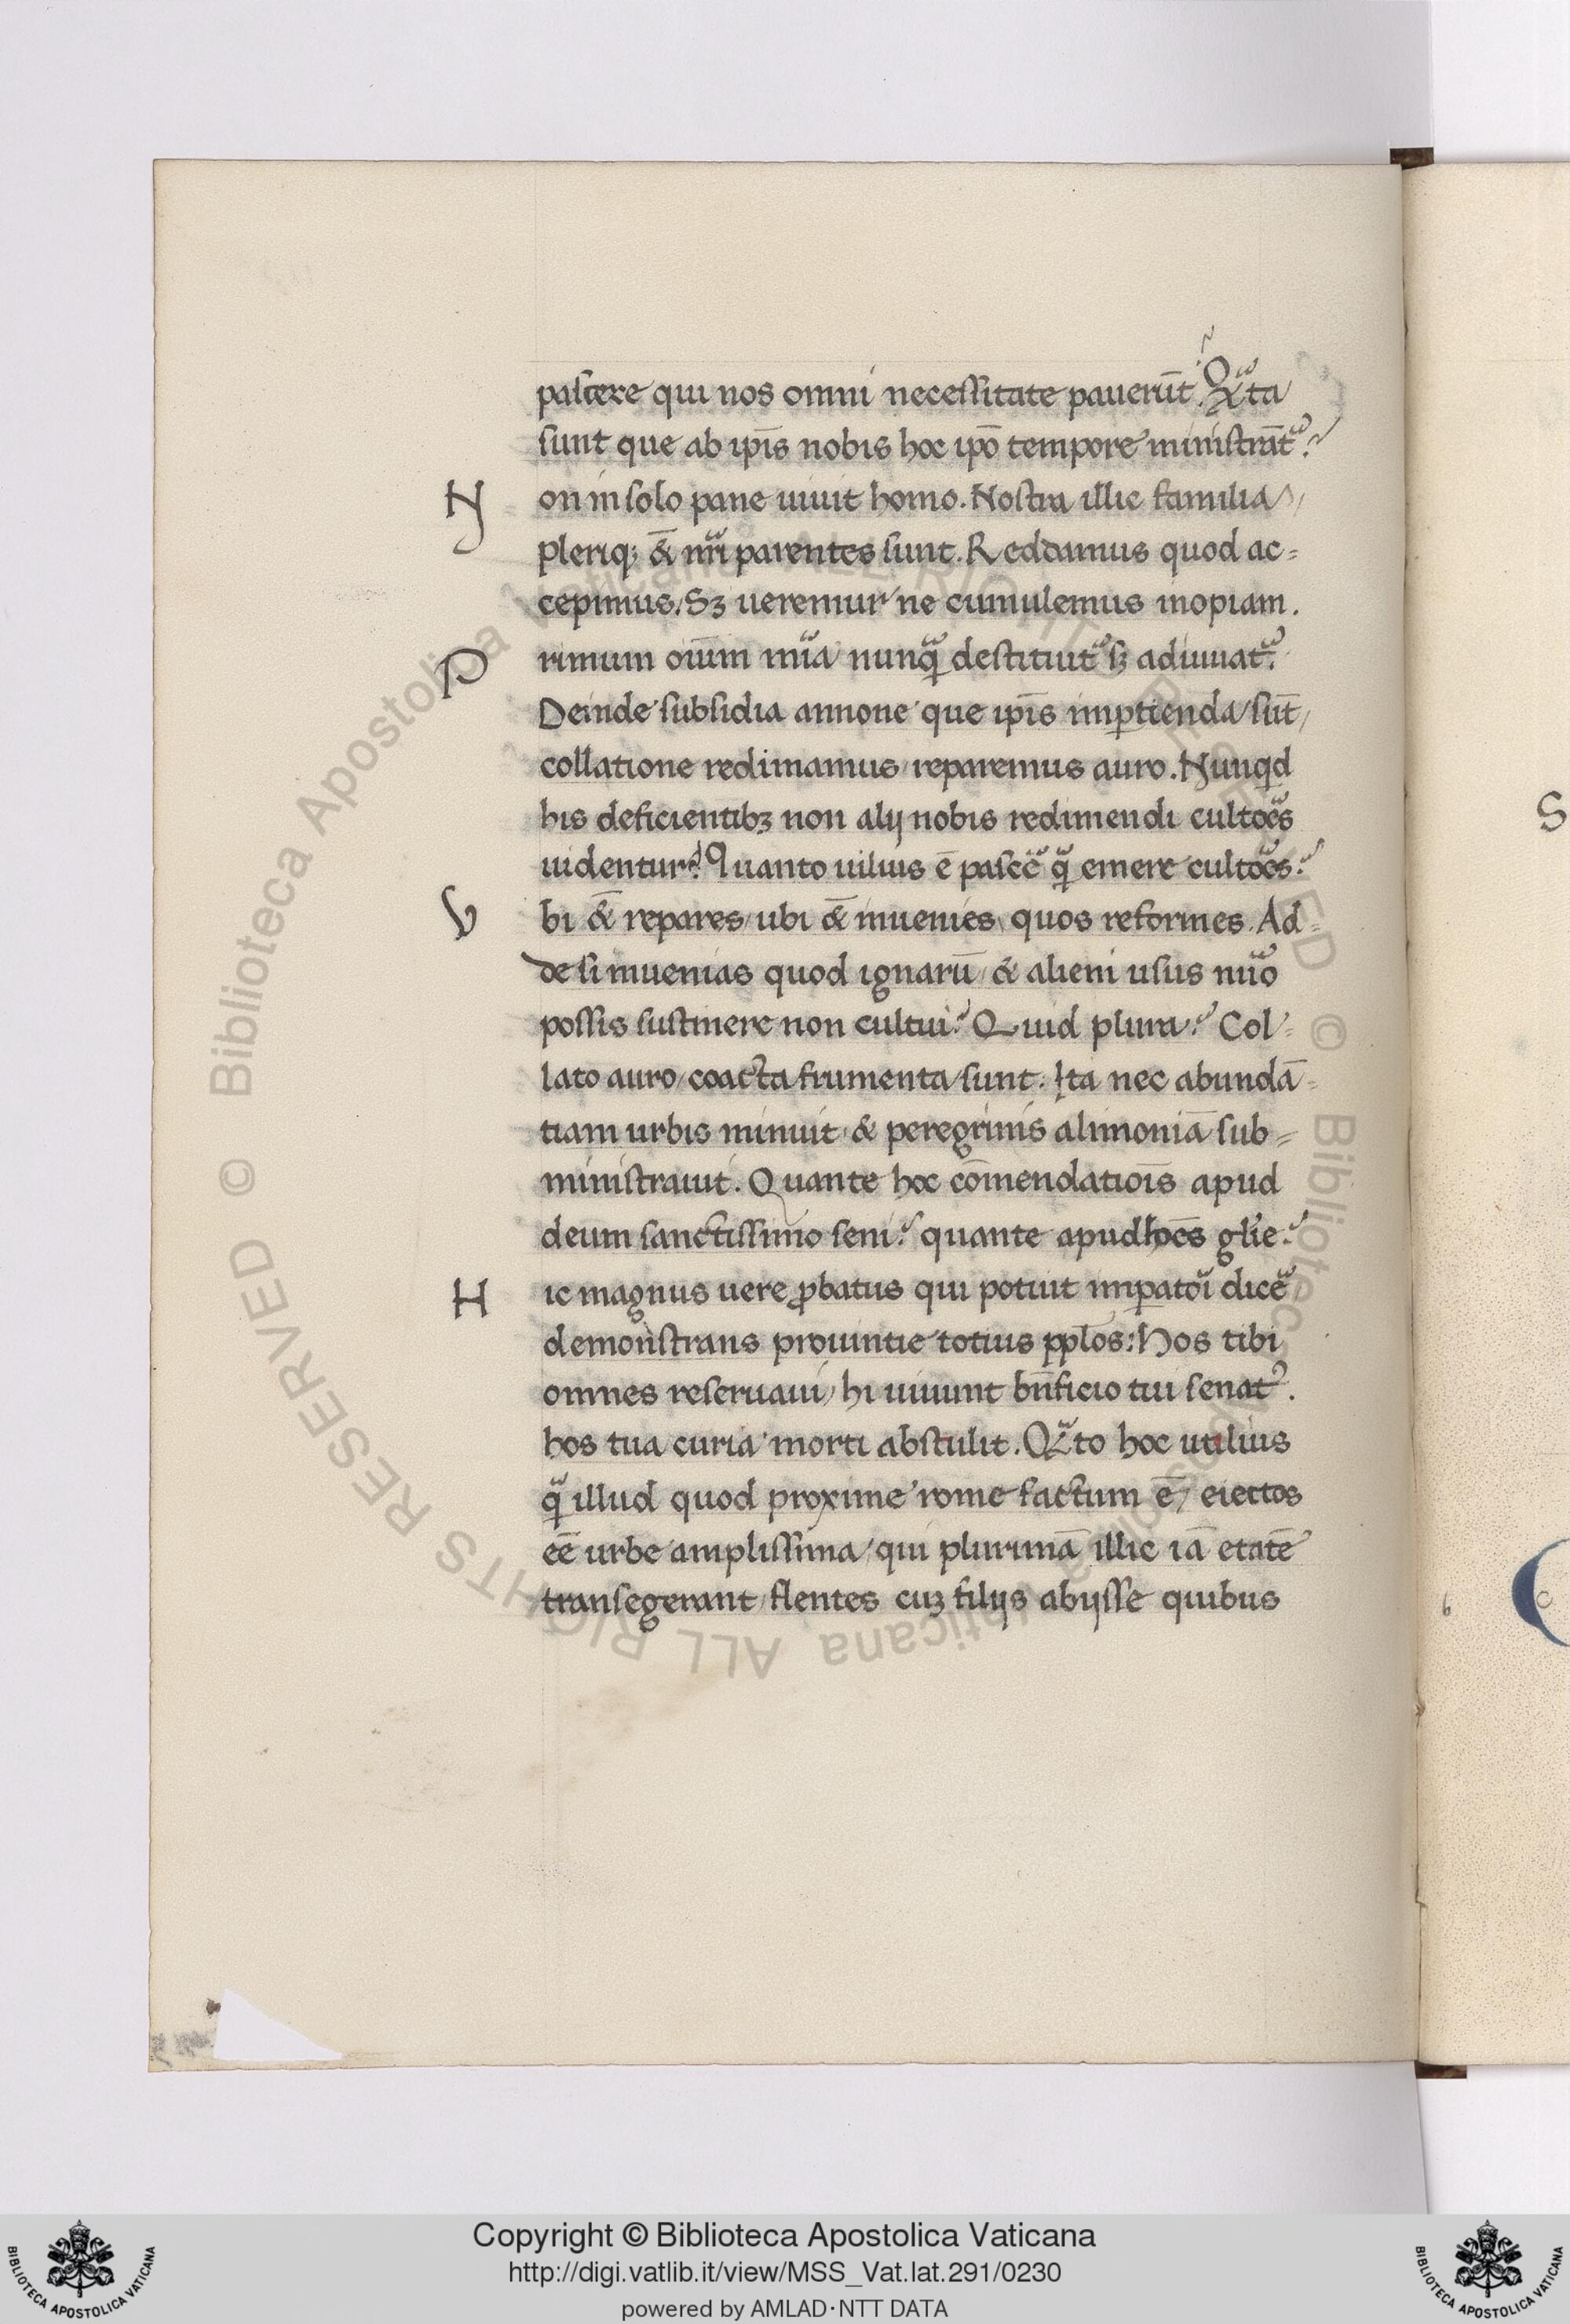 pascere qui nos omni necessitate pauerūt? Qᵃta
sunt que ab ip̄is nobis hoc ip̄o tempore ministrāt᷒?
N on in solo pane uiuit homo. Nostra illic familia/
pleriq; & nr̄i parentes sunt. Reddamus quod ac=
cepimus. Sꝫ ueremur ne cumulemus inopiam.
P rimum oīum mīa nunqᵃ destituit᷒ sꝫ adiuuat᷒.
Deinde subsidia annone que ip̄is imꝑtienda sūt/
collatione redimamus/ reparemus auro. Nunqd
his deficientibꝫ non alij nobis redimendi cultōes
uidentur? Quanto uilius ē pascē qᵃ emere cultōes?
V bi & repares/ ubi & inuenies, quos reformes. Ad=
de si inuenias quod ignarū/ & alieni usus nūo
possis sustinere non cultui? Quid plura? Col=
lato auro/ coacta frumenta sunt. Ita nec abundā=
tiam urbis minuit/ & peregrinis alimoniā sub=
ministrauit. Quante hoc cōmendatiōis apud
deum sanctissimo seni? quante apud hōes gl̄ie?
H ic magnus uere ꝓbatus qui potuit imꝑatōi dicē/
demonstrans prouintie totius pplōs: Hos tibi
omnes reseruaui/ hi uiuunt bn̄ficio tui senat᷒.
hos tua curia morti abstulit. Qᵃto hoc utilius
qᵃ illud quod proxime rome factum ē/ eiectos
eē urbe amplissima/ qui plurimā illic iā etatē
transegerant/ flentes cuꝫ filijs abijsse quibus
S
6
C
© Biblioteca Apostolica Vaticana ALL RIGHTS RESERVED © Biblioteca Apostolica Vaticana ALL RIGHTS RESERVED
Copyright © Biblioteca Apostolica Vaticana
http://digi.vatlib.it/view/MSS_Vat.lat.291/0230
powered by AMLAD·NTT DATA
BIBLIOTECA APOSTOLICA VATICANA
BIBLIOTECA APOSTOLICA VATICANA